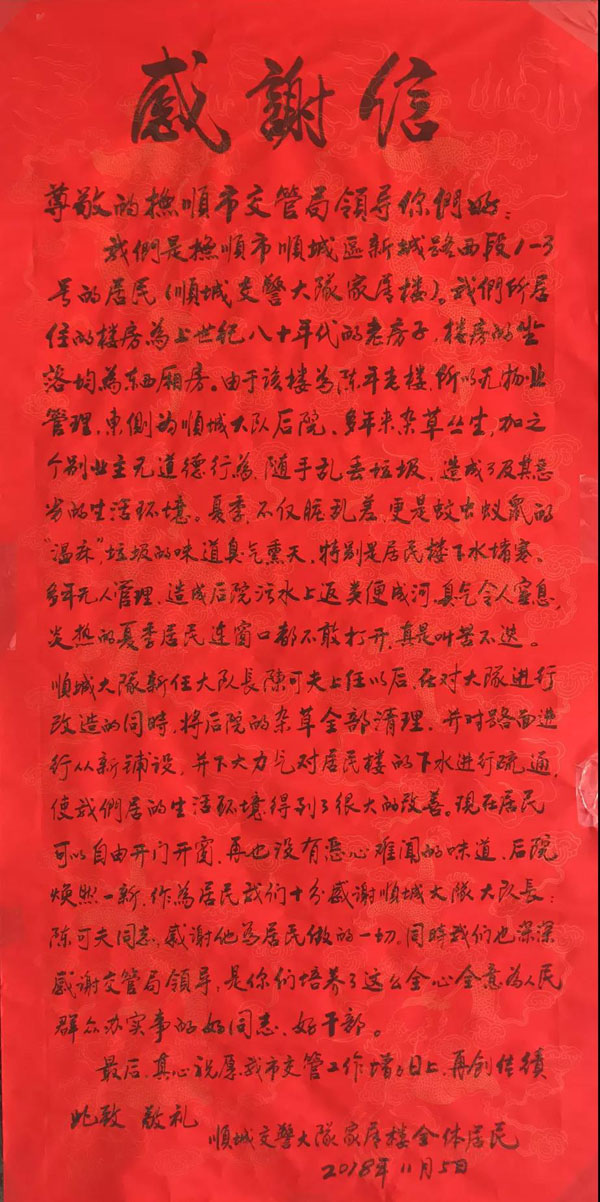 感謝信
尊敬的撫順市交管局領导你們好：
我們是撫順市順城區新城路西段1-3
号的居民（順城交警大隊家属楼）。我們所居
住的楼房為上世纪八十年代的老房子，楼房的坐
落均為东西厢房。由于该楼為陈年老楼，所以无物业
管理，東側為順城大队后院、多年来杂草丛生，加之
个别业主无道德行為，随手乱丢垃圾，造成了及其恶
劣的生活环境。夏季，不仅脏乱差，更是蚊虫蚁鼠的
“温床”，垃圾的味道臭气熏天，特别是居民楼下水堵塞、
多年无人管理，造成后院污水上返粪便成河，臭气令人窒息，
炎热的夏季居民連窗口都不敢打开，真是叫苦不迭。
順城大隊新任大队長陳可夫上任以后，在对大隊進行
改造的同時，将后院的杂草全部清理，并对路面進
行从新铺设，并下大力气对居民楼的下水進行疏通，
使我們居的生活环境得到了很大的改善。現在居民
可以自由开门开窗，再也没有恶心难闻的味道，后院
焕然一新，作為居民我们十分感谢順城大隊大队長：
陈可夫同志，感谢他為居民做的一切，同時我们也深深
感谢交管局领导，是你们培养了这么全心全意為人民
群众办实事的好同志、好干部。
最后，真心祝愿我市交管工作增增日上，再创佳績
此致 敬礼
順城交警大隊家属楼全体居民
2018年11月5日